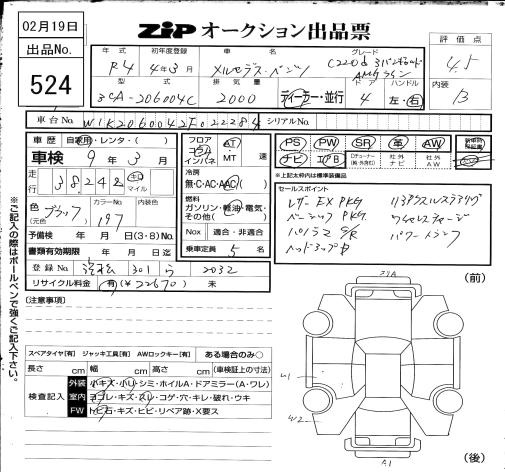 02月19日
ZIP オークション出品票
出品No.
524
評価点
4.5
内装
B
年式 初年度登録 車名 グレード
R4 4年3月 メルセデス・ベンツ C220d
AMGライン
型式 排気量 ドア ハンドル
3CA-206004C 2000 ディーラー・並行 4 左・右
車台No. W1K2060042F022284 シリアルNo.
車歴 自家用・レンタ・( )
車検 9年3月
走行 38242 キロ マイル
色 (元色) ブラック カラーNo. 197 内装色
予備検 年 月 日(3・8)No.
書類有効期限 年 月 日迄
登録No. 浜松 301 ら 2032
リサイクル料金 有(¥22670) 未
フロア コラム インパネ AT MT 速
冷房 無・C・AC・AAC( )
燃料 ガソリン・軽油・電気・その他( )
Nox 適合・非適合
乗車定員 5 名
PS PW SR 革 AW
ナビ エアB Dチューナー 社外ナビ 社外AW
※上記太枠内は標準装備品
セールスポイント
レザーEX PKG リアアクスルステアリング
ベーシックPKG. ワイヤレスチャージ
パノラマS/R パワートランク
ヘッドアップD
(注意事項)
スペアタイヤ[有] ジャッキ工具[有] AWロックキー[有] ある場合のみ○
長さ cm 幅 cm 高さ cm (車検証上の寸法)
検査記入
外装 小キズ・小U・シミ・ホイルA・ドアミラー(A・ワレ)
室内 ヨゴレ・キズ・スレ・コゲ・穴・キレ・破れ・ウキ
FW トビ石・キズ・ヒビ・リペア跡・X要ス
※ご記入の際はボールペンで強くご記入下さい。
(前)
U1
W2
A1
(後)